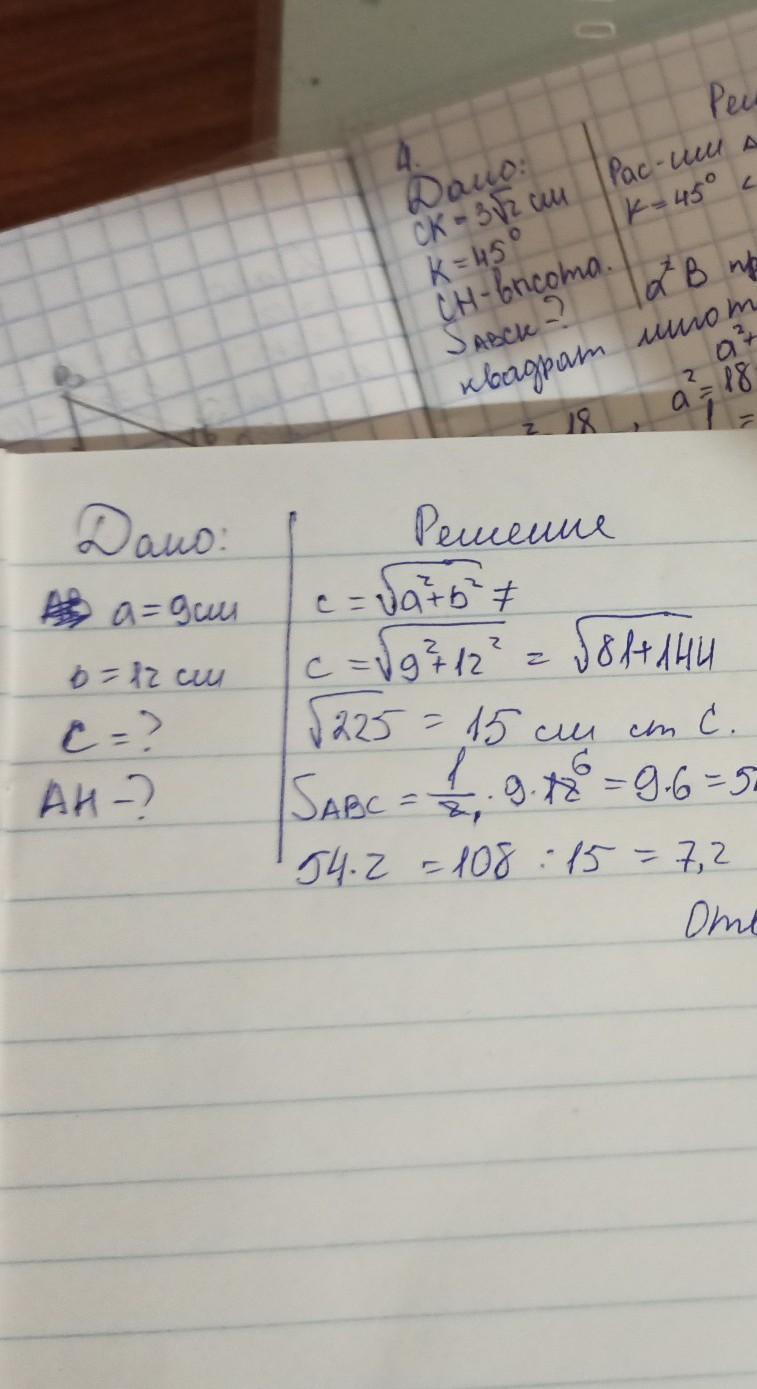 4.
Дано:
CK = 3√2 см
K = 45°
CH - высота.
SABCK - ?
Реш
Рас-им Δ
K = 45° <
В пр
квадрат
a²+
a² = 18
18,
Дано:
a = 9 см
b = 12 см
c = ?
AH - ?
Решение
c = √a²+b² ≠
c = √9²+12² = √81+144
√225 = 15 см ст C.
SABC = 1/2 · 9 · 12 6 = 9·6 = 5
54·2 = 108 : 15 = 7,2
Отв